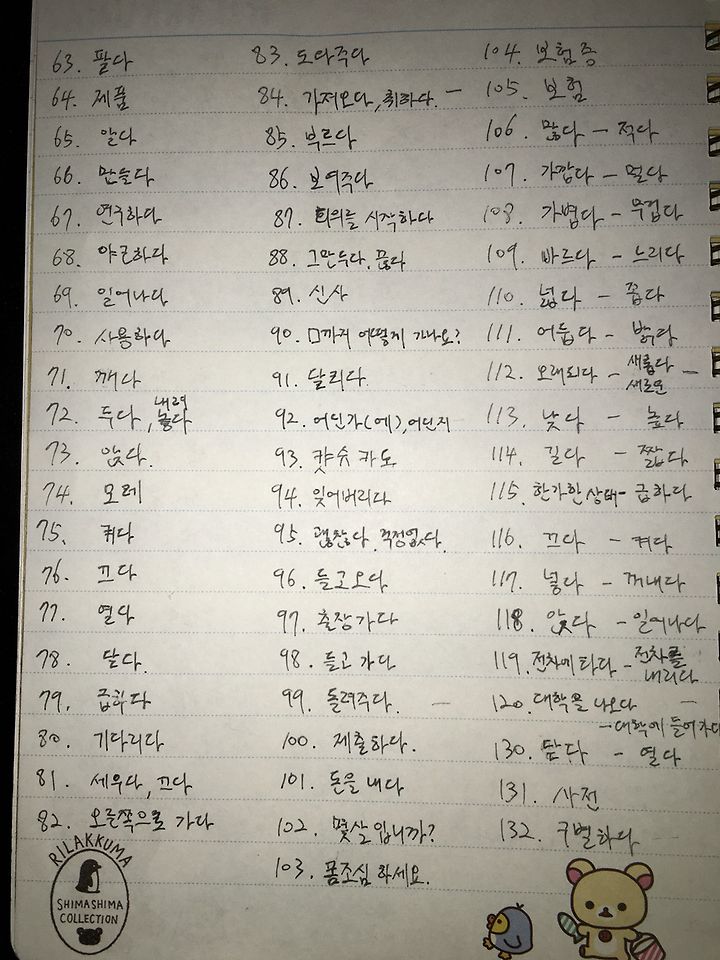 63. 팔다
64. 제품
65. 알다
66. 만들다
67. 연구하다
68. 야근하다
69. 일어나다
70. 사용하다
71. 깨다
72. 두다, 내려놓다
73. 앉다.
74. 모레
75. 켜다
76. 끄다
77. 열다
78. 닫다.
79. 급하다
80. 기다리다
81. 세우다, 끄다
82. 오른쪽으로 가다
83. 도와주다
84. 가져오다, 취하다. -
85. 부르다
86. 보여주다
87. 회의를 시작하다
88. 그만두다, 끊다
89. 신사
90. □까지 어떻게 가나요?
91. 달리다.
92. 어딘가(에), 어딘지
93. 캇슈 카도
94. 잊어버리다
95. 괜찮다, 걱정없다.
96. 들고오다
97. 출장가다
98. 들고 가다
99. 돌려주다. -
100. 제출하다.
101. 돈을 내다
102. 몇살입니까?
103. 몸조심 하세요.
104. 보험증
105. 보험
106. 많다 - 적다
107. 가깝다 - 멀다
108. 가볍다 - 무겁다
109. 빠르다 - 느리다
110. 넓다 - 좁다
111. 어둡다 - 밝다
112. 오래되다 - 새롭다 -
새로운
113. 낮다 - 높다
114. 길다 - 짧다
115. 한가한 상태 - 급하다
116. 끄다 - 켜다
117. 넣다 - 꺼내다
118. 앉다 - 일어나다
119. 전차에 타다 - 전차를
내리다
120. 대학을 나오다 -
- 대학에 들어가다
130. 닫다 - 열다
131. 사전
132. 구별하다
RILAKKUMA
SHIMASHIMA
COLLECTION